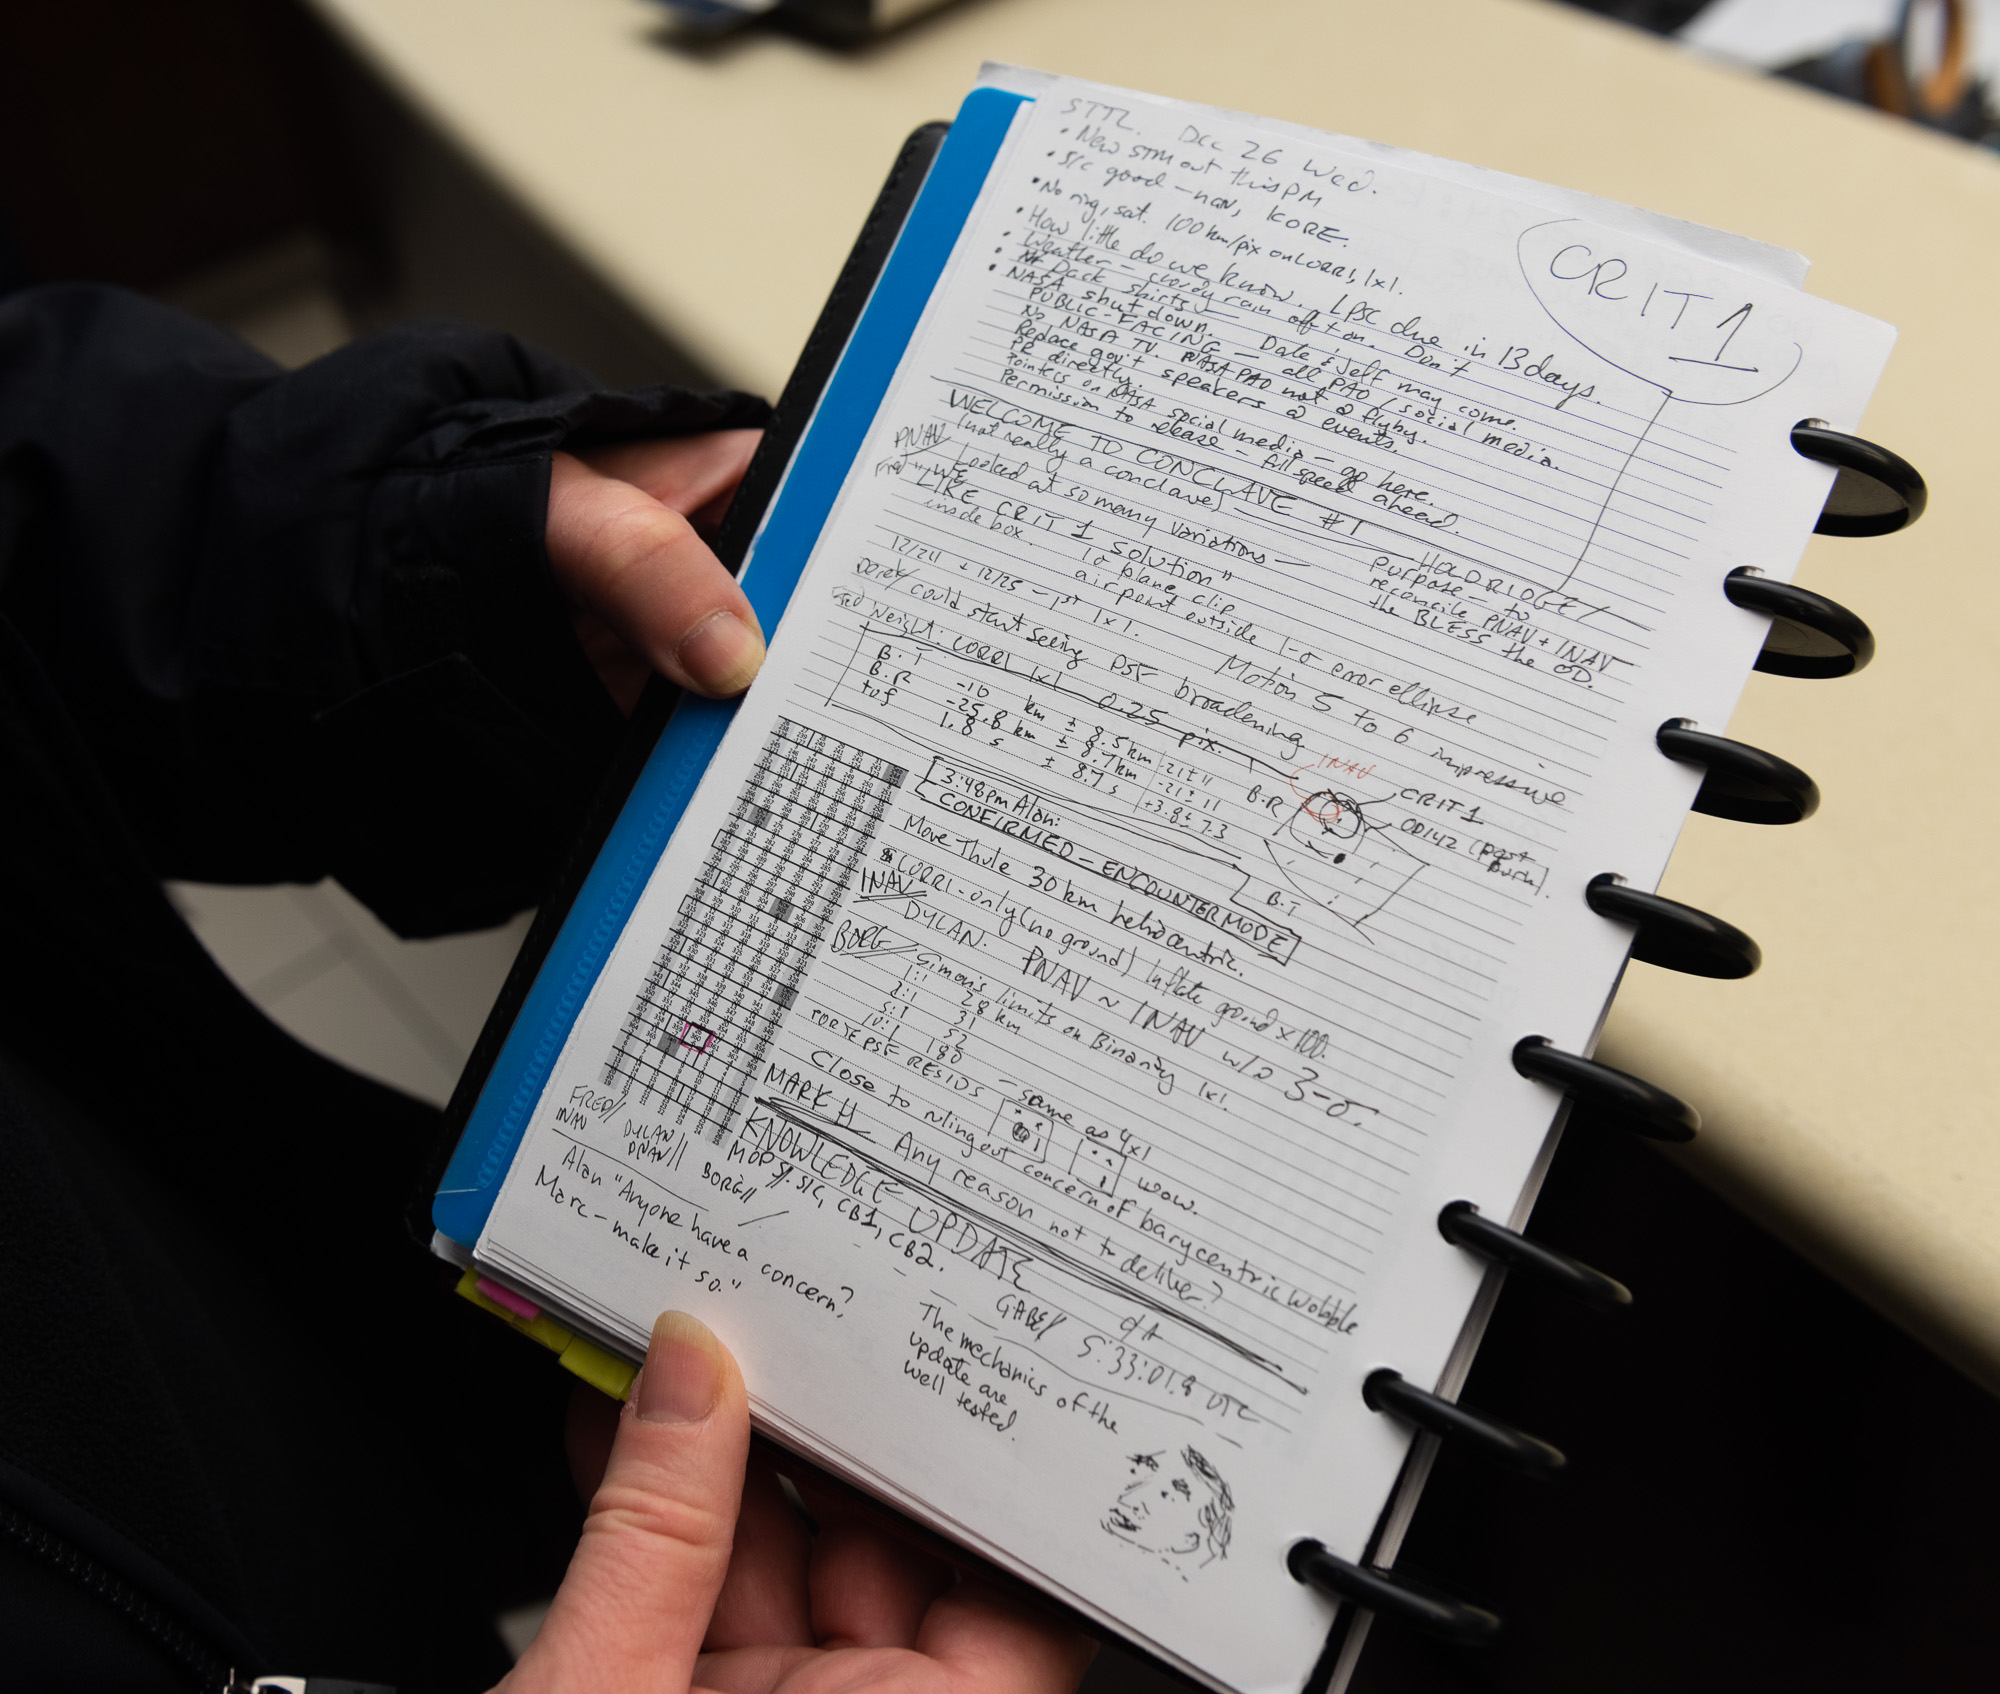 STTL. Dec 26 Wed.
• New STM out this PM
• S/C good – nav, KORE.
• No ring, sat. 100 km/pix on LORRI, 1x1.
• How little do we know. LPSC due in 13 days.
• Weather – cloudy rain off + on. Don't
• Pack shirts – Dale & Jeff may come.
• NASA shutdown.
PUBLIC-FACING – all PAO / social media.
No NASA TV. NASA PAO not @ flyby.
Replace gov't speakers @ events.
PR directly.
Pointers on NASA social media – go here.
Permission to release – full speed ahead.
CRIT 1
WELCOME TO CONCLAVE #1
(not really a conclave)
HOLDRIDGE/
purpose – to
reconcile PNAV + INAV
the BLESS the OD.
PNAV/
Fred
Looked at so many variations –
"WE
LIKE CRIT 1 solution"
inside box.
1σ plane clip
air point outside 1-σ error ellipse
12/24 + 12/25 – 1st 1x1.
Motion 5 to 6 impressive
Derek/ could start seeing PSF broadening
Fred Weight: LORRI 1x1 0.25 pix.
B.T -10 km ± 8.5 km -21 ± 11
B.R -25.8 km ± 8.7 km -21 ± 11
tof 1.8 s ± 8.7 s +3.8 ± 7.3
INAV
B.R
CRIT 1
OD142 (post burn).
B.T
3:48pm Alan:
CONFIRMED – ENCOUNTER MODE
Move Thule 30 km heliocentric.
LORRI-only (no ground) Inflate ground x100.
INAV/
DYLAN. PNAV ~ INAV w/in 3-σ.
BORG// Simon's limits on Binarity 1x1.
1:1 28 km
2:1 31
5:1 52
10:1 180
PORTER PSF RESIDS – same as 4x1
wow.
Close to ruling out concern of barycentric wobble
MARK H Any reason not to deliver?
KNOWLEDGE UPDATE
MOPS/. S/C, CB1, CB2.
FRED//
INAV
DYLAN//
PNAV//
BORG//
Alan "Anyone have a concern?
Marc – make it so."
GABE// C/A
5:33:01.8 UTC
The mechanics of the
update are
well tested.